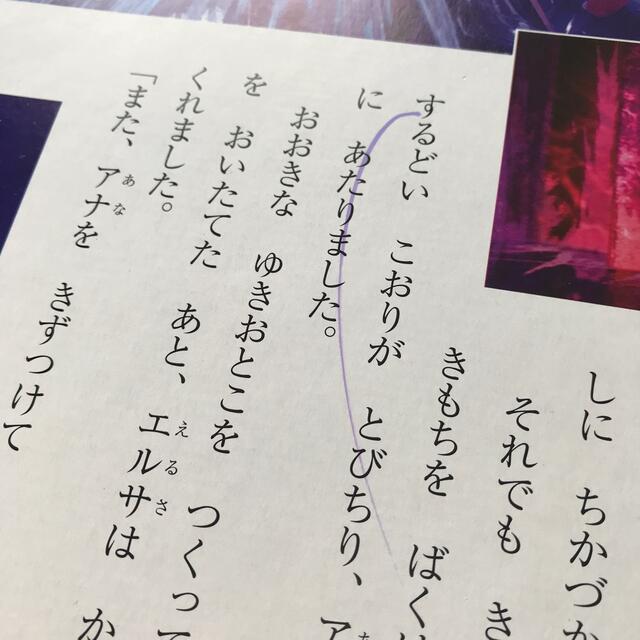 しに ちかづか
それでも き
きもちを ばく
するどい こおりが とびちり、ア
に あたりました。
おおきな ゆきおとこを つくって
を おいたてた あと、エルサは か
くれました。
「また、アナを きずつけて